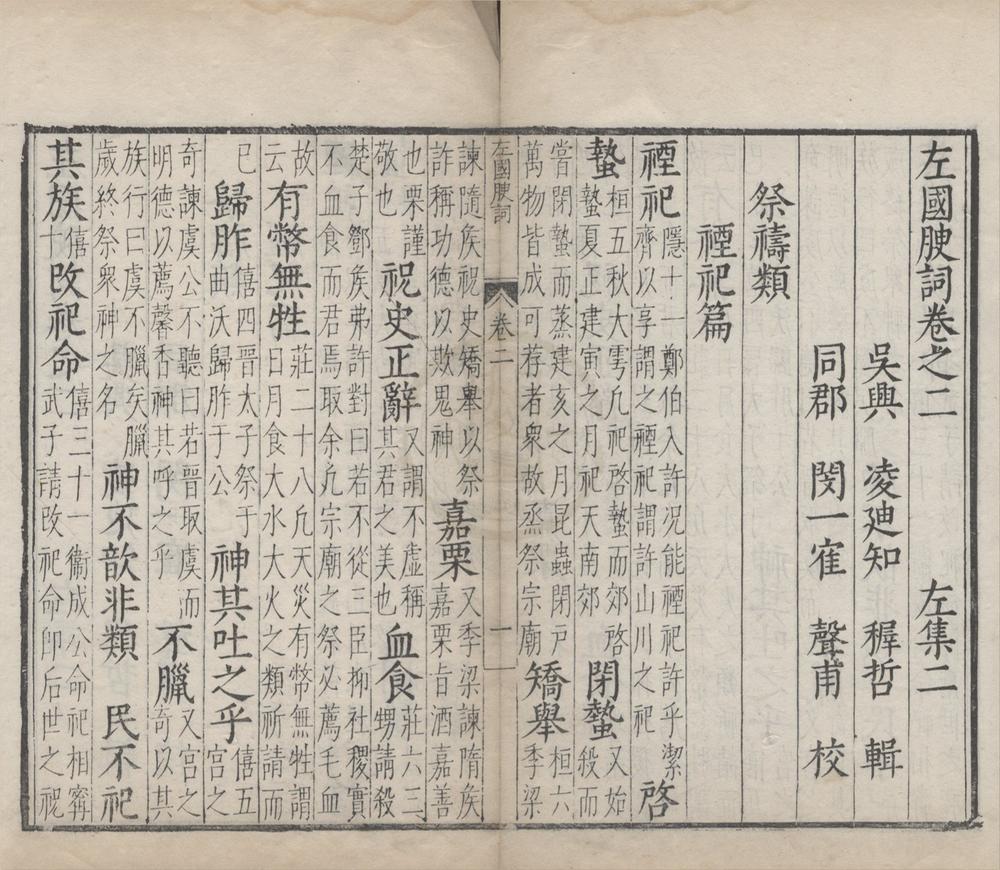 左國腴詞卷之二　左集二
吳興　凌迪知　穉哲　輯
同郡　閔一寉　聲甫　校
祭禱類
禋祀篇
禋祀隱十一鄭伯入許况能禋祀許乎潔齊以享謂之禋祀謂許山川之祀　啓
蟄桓五秋大雩凢祀啓蟄而郊啓蟄夏正建寅之月祀天南郊　閉蟄又始殺而
嘗閉蟄而蒸建亥之月昆蟲閉戶萬物皆成可荐者衆故烝祭宗廟　矯舉桓六季梁
左國腴詞　卷二　一
諫隨矦祝史矯舉以祭詐稱功德以欺鬼神　嘉栗又季梁諫隋矦嘉栗旨酒嘉善
也栗謹敬也　祝史正辭又謂不虛稱其君之美也　血食莊六三甥請殺
楚子鄧矦弗許對曰若不從三臣抑社稷實不血食而君焉取余凢宗廟之祭必薦毛血
故云　有幣無牲莊二十八凢天災有幣無牲謂日月食大水大火之類祈請而
已　歸胙僖四晋太子祭于曲沃歸胙于公　神其吐之乎僖五宮之
奇諫虞公不聽曰若晋取虞而明德以薦馨香神其呼之乎　不臘又宮之奇以其
族行曰虞不臘矣臘歲終祭衆神之名　神不歆非類　民不祀
其族僖十　改祀命僖三十一衛成公命祀相甯武子請改祀命即后世之祝